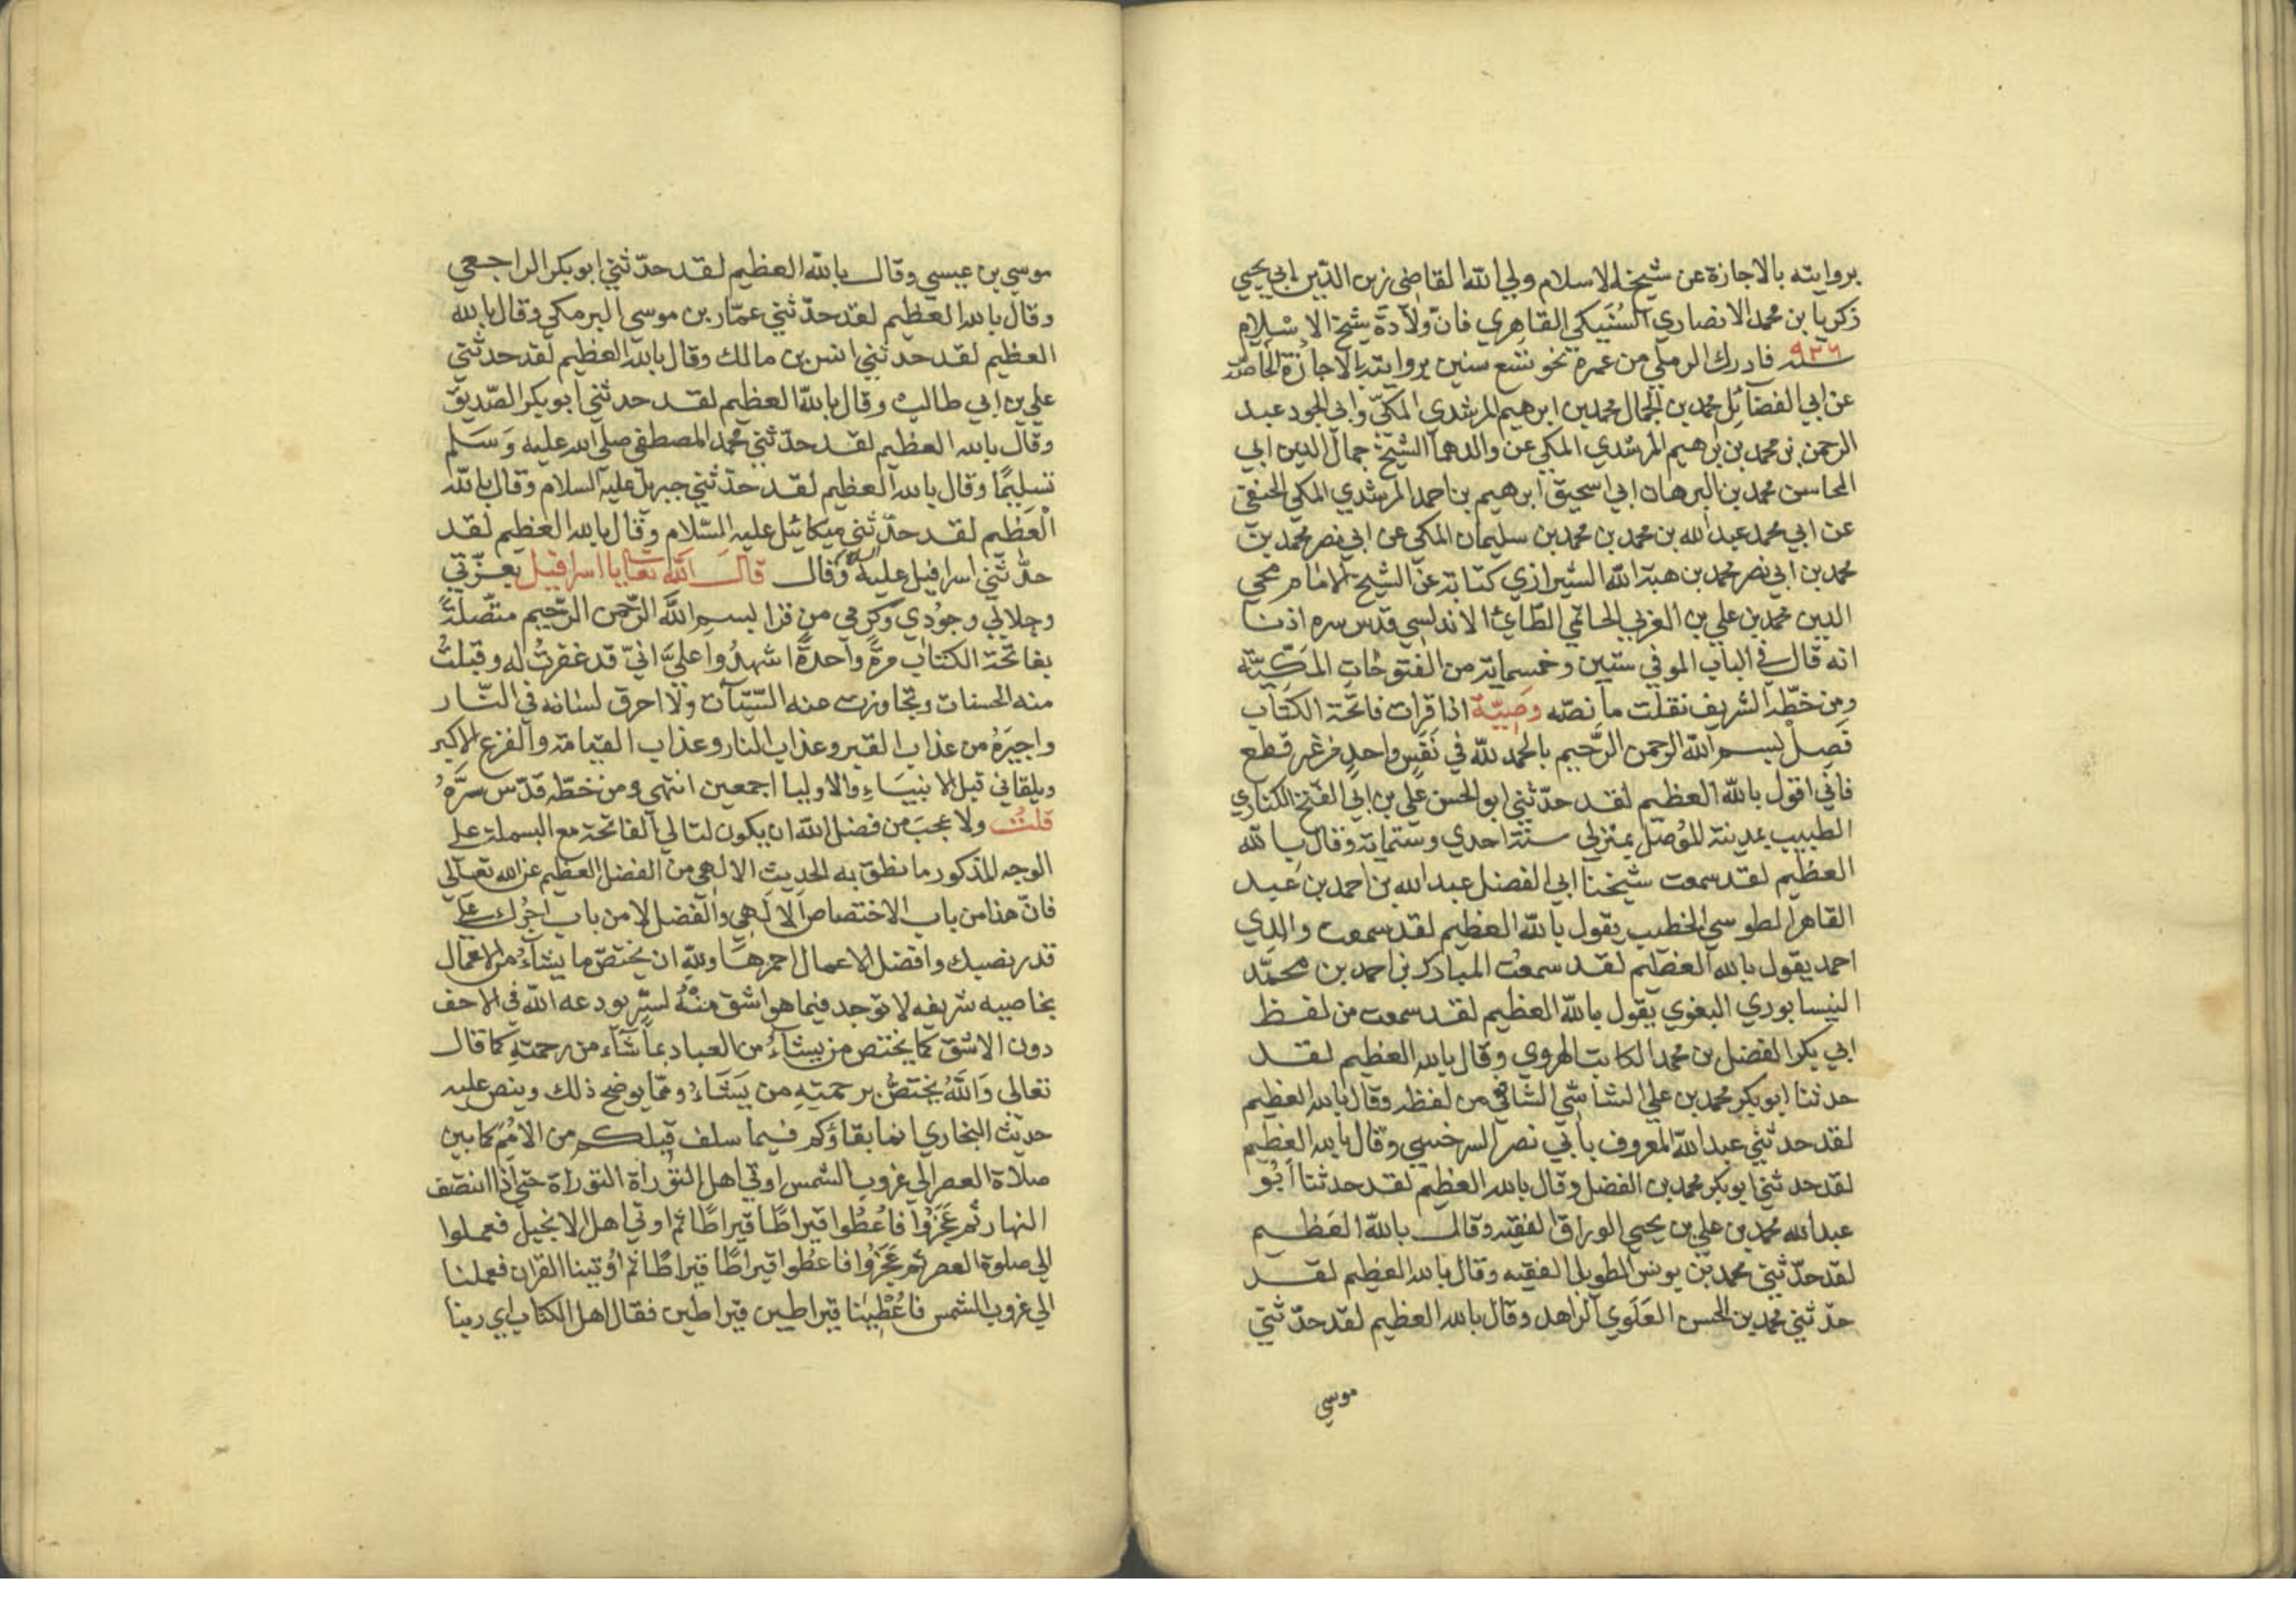 بروايته بالاجازة عن شيخه الاسلام ولي الله القاضى زين الدّين ابي يحيي
زكريا بن محمد الانصاري السُنَيكي القاهري فانّ ولادة شيخ الاسلام
سنة ٩٢٦ فادرك الرملي من عمره نحو تسع سنين بروايته بالاجازة الخاصّة
عن ابي الفضائل محمد بن الجمال محمد بن ابرهيم المرشدي المكيّ وابي الجود عبد
الرحمن بن محمد بن ابرهيم المرشدي المكي عن والدهما الشيخ جمال الدين ابي
المحاسن محمد بن البرهان ابي اسحيق ابرهيم بن احمد المرشدي المكي الحنفي
عن ابي محمد عبد الله بن محمد بن محمد بن سليمان المكي عن ابي نصر محمد بن
محمد بن ابي نصر محمد بن هبة الله الشيرازي كتابة عن الشيخ الامام محي
الدين محمد بن علي بن العربي الحاتمي الطّائي الاندلسي قدس سره اذنا
انه قال في الباب الموفي ستين وخمسمائة من الفتوحات المكّيّة
ومن خطّه الشريف نقلت ما نصّه وصِيّة اذا قرات فاتحة الكتاب
فَصِلْ بسم الله الرحمن الرّحيم بالحمد لله في نَفَسٍ واحدٍ من غير قطع
فاني اقول بالله العظيم لقد حدّثني ابو الحسن علي بن ابي الفتح الكناري
الطبيب بمدينة الموُصّل بمنزلي سنة احدي وستمائة وقال بالله
العظيم لقد سمعت شيخنا ابي الفضل عبد الله بن احمد بن عبد
القاهر الطوسي الخطيب يقول بالله العظيم لقد سمعت والدي
احمد يقول بالله العظيم لقد سمعت المبارك بن احمد بن محمّد
النيسابوري البغوي يقول بالله العظيم لقد سمعت من لفظ
ابي بكر الفضل بن محمد الكاتب الهروي وقال بالله العظيم لقد
حدثنا ابو بكر محمد بن علي الشاشي الشافعي من لفظه وقال بالله العظيم
لقد حدثني عبد الله المعروف بأبي نصر السرخسي وقال بالله العظيم
لقد حدثني ابو بكر محمد بن الفضل وقال بالله العظيم لقد حدثنا أبُو
عبد الله محمد بن علي بن يحيي الوراق الفقيه وقال بالله العَظيم
لقد حدّثني محمد بن يونس الطويل الفقيه وقال بالله العظيم لقد
حدّثني محمد بن الحسن العَلَوي الزاهد وقال بالله العظيم لقد حدّثني
موسي
موسي بن عيسي وقال بالله العظيم لقد حدّثني ابو بكر الراجعي
وقال بالله العظيم لقد حدّثني عمّار بن موسي البرمكي وقال بالله
العظيم لقد حدثني انس بن مالك وقال بالله العظيم لقد حدثني
علي بن ابي طالب وقال بالله العظيم لقد حدثني ابو بكر الصّديق
وقال بالله العظيم لقد حدّثني محمد المصطفي صلي الله عليه وَسَلم
تسليمًا وقال بالله العظيم لقد حدّثني جبريل عليه السلام وقال بالله
العَظيم لقد حدّثني ميكائيل عليه السّلام وقال بالله العظيم لقد
حدّثني اسرافيل عليه السلام وقال قال الله تعالي يا اسرافيل بعزّتي
وجلالي وجُودي وكرمي من قرا بسم الله الرّحمن الرّحيم متّصلةً
بفاتحة الكتاب مرةً واحدةً اشهدُوا عليَّ انيّ قد غفرتُ له وقبلتُ
منه الحسنات وتجاوزت عنه السّيّآت ولا احرق لسانه في النّار
واجيرُهُ من عذاب القبر وعذاب النار وعذاب القيامة والفزع الاكبر
ويلقاني قبل الانبيَاءِ والاوليا اجمعين انتهي ومن خطّه قدّس سرَّهُ
قلتُ ولا عجبَ من فضل الله ان يكون لتالي الفاتحة مع البسملة علي
الوجه المذكور ما نطق به الحديث الالهي من الفضل العظيم عن الله تعالي
فانّ هذا من باب الاختصاص الالهي والفضل لا من باب اجُرك علي
قدر نصبك وافضل الاعمال احمزها ولله ان يختصّ ما يشاء من الاعمال
بخاصيه شريفه لا توجد فيما هو اشق منهُ لسرٍّ يودعه الله في الاخف
دون الاشقّ كما يختص من يشاءُ من العباد بما شآء من رحمتهِ كما قال
تعالى وَاللهُ يختصُّ برحمتِهِ من يَشَاءُ وممّا يوضح ذلك وينص عليه
حديث البخاري انما بقاؤكم فيما سلف قبلكم من الامُمَ كما بين
صلاة العصر الي غروب الشمس اوتي اهل التوراة التوراة حتي اذا انتصف
النهار ثم عَجَزُوا فاعُطُوا قيراطًا قيراطًا ثم اوتي اهل الانجيل فعملوا
الي صلوة العصر ثم عَجَزُوا فاعطُوا قيراطًا قيراطًا ثم اُوتينا القران فعملنا
الي غروب الشمس فاعُطِينا قيراطين قيراطين فقال اهل الكتاب اي ربنا